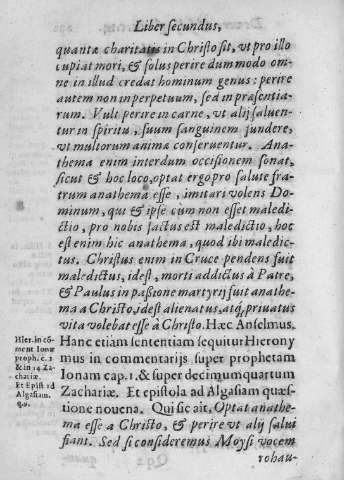 Liber secundus,
quantæ charitatis in Christo sit, vt pro illo
cupiat mori, & solus perire dummodo om-
ne in illud credat hominum genus: perire
autem non in perpetuum, sed in præsentia-
rum. Vult perire in carne, vt alij saluen-
tur in spiritu, suum sanguinem fundere,
vt multorum animæ conseruentur. Ana-
thema enim interdum occisionem sonat,
sicut & hoc loco, optat ergo pro salute fra-
trum anathema esse, imitari volens Do-
minum, qui & ipse cùm non esset maledi-
ctio, pro nobis factus est maledictio, hoc
est enim hic anathema, quod ibi maledic-
tus. Christus enim in Cruce pendens fuit
maledictus, idest, morti addictus à Patre,
& Paulus in passione martyrij fuit anathe-
ma à Christo, idest alienatus, atq; priuatus
vita volebat esse à Christo. Hæc Anselmus.
Hanc etiam sententiam sequitur Hierony
mus in commentarijs super prophetam
Ionam cap. 1. & super decimumquartum
Zachariæ. Et epistola ad Algasiam quæs-
tione nouena. Qui sic ait. Optat anathe-
ma esse a Christo, & perire vt alij salui
fiant. Sed si consideremus Moysi vocem
rohau-
Hier. in cō
ment Ionæ
proph. c. 1
& in 14 Za-
chariæ.
Et Epist ad
Algasiam.
q.9.